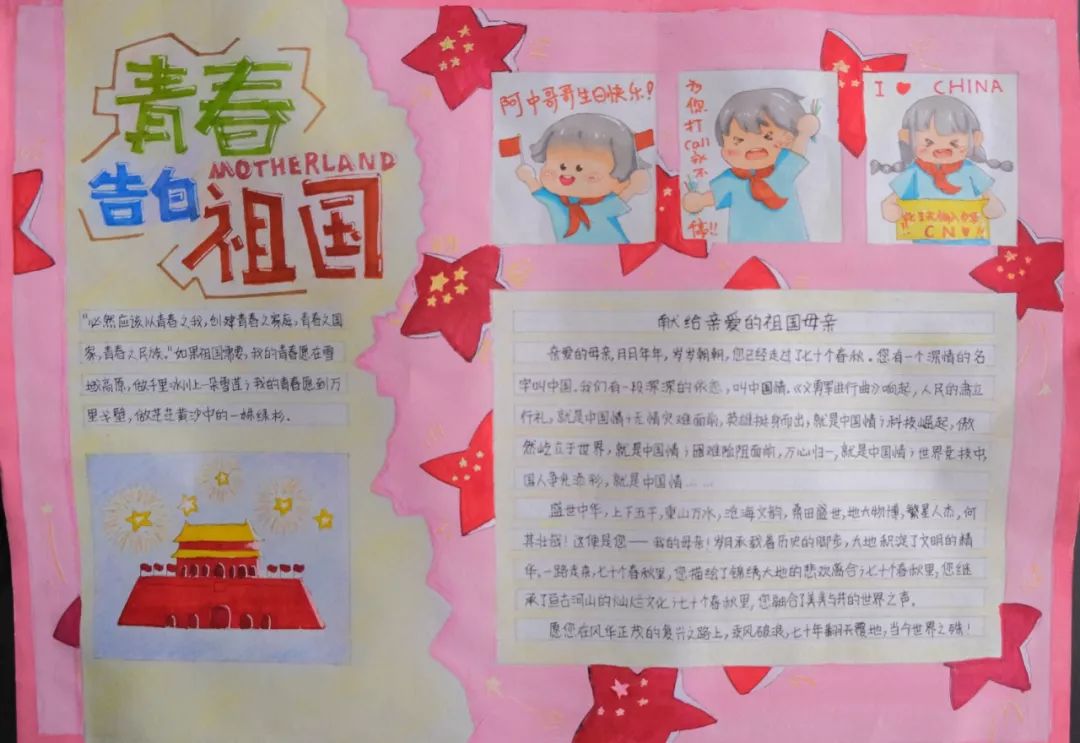 青春
MOTHERLAND
告白
祖国
"必然应该以青春之我,创建青春之家庭,青春之国
家,青春之民族。"如果祖国需要,我的青春愿在雪
域高原,做千里冰川上一朵雪莲;我的青春愿到万
里戈壁,做茫茫黄沙中的一株绿杉.
阿中哥哥生日快乐!
为你打call永不停!!
I CHINA
此生无悔入华夏
"CN"!!
献给亲爱的祖国母亲
亲爱的母亲,月月年年,岁岁朝朝,您已经走过了七十个春秋。您有一个深情的名
字叫中国.我们有一段深深的依恋,叫中国情.《义勇军进行曲》响起,人民的肃立
行礼,就是中国情;无情灾难面前,英雄挺身而出,就是中国情;科技崛起,傲
然屹立于世界,就是中国情;困难险阻面前,万心归一,就是中国情;世界竞技中,
国人争光添彩,就是中国情……
盛世中华,上下五千,重山万水,沧海文韵,桑田盛世,地大物博,繁星人杰,何
其壮哉!这便是您——我的母亲!岁月承载着历史的脚步,大地积淀了文明的精
华.一路走来,七十个春秋里,您描绘了锦绣大地的悲欢离合;七十个春秋里,您继
承了亘古河山的灿烂文化;七十个春秋里,您融合了美美与共的世界之声。
愿您在风华正茂的复兴之路上,乘风破浪,七十年翻天覆地,当今世界之殊!